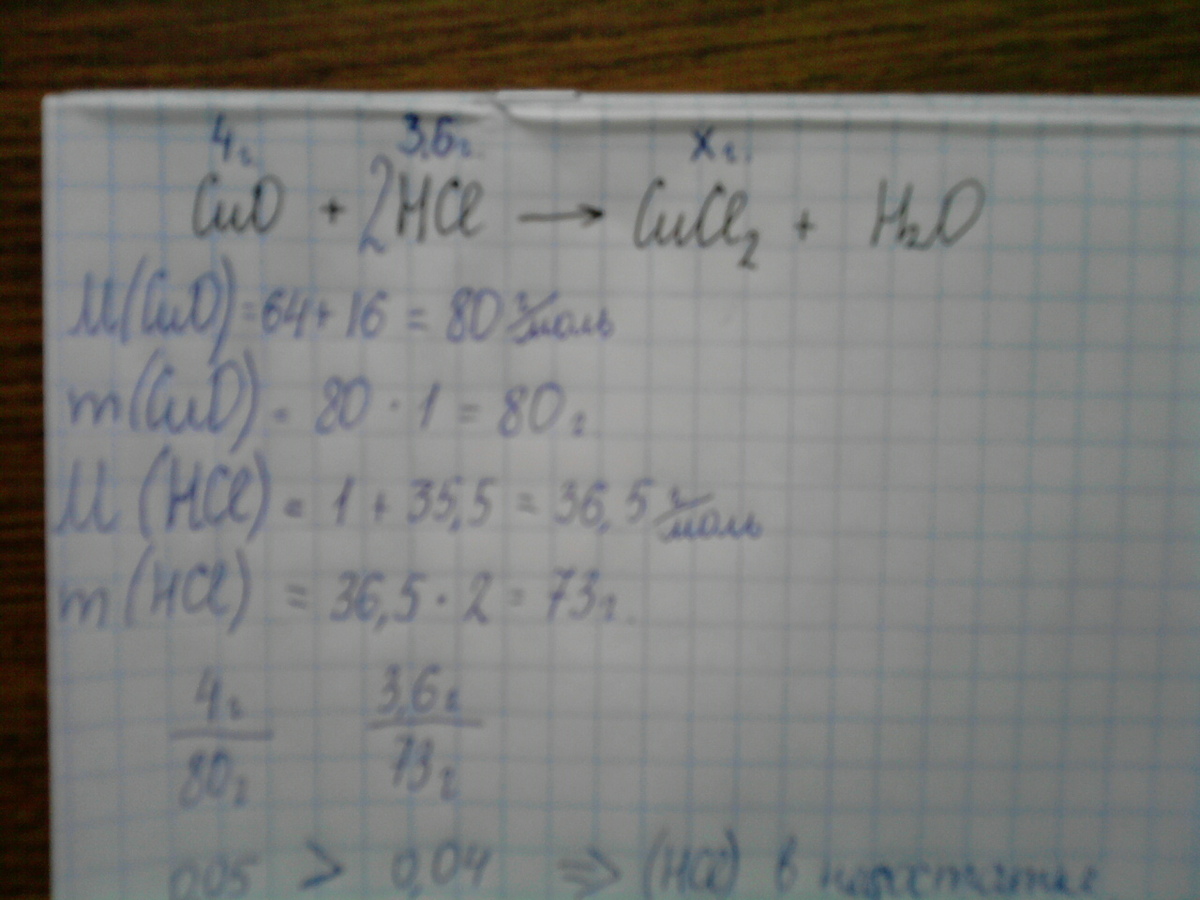 4г. 3,6г. Xг.
CuO + 2HCl → CuCl₂ + H₂O
M(CuO) = 64 + 16 = 80 г/моль
m(CuO) = 80 · 1 = 80г.
M(HCl) = 1 + 35,5 = 36,5 г/моль
m(HCl) = 36,5 · 2 = 73г.
4г 3,6г
80г 73г
0,05 > 0,04 ⇒ (HCl) в